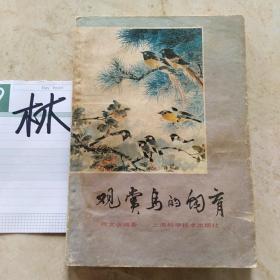 林
观赏鸟的饲育
编著 上海科学技术出版社